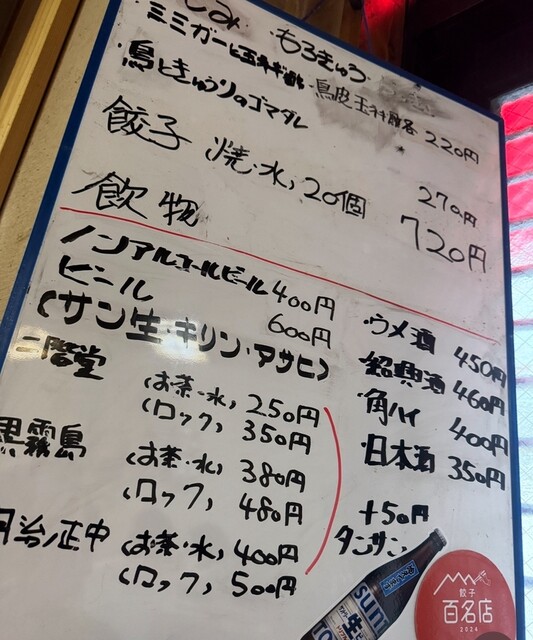 もろきゅう
ミミガーと玉ネギ酢・鳥皮玉ネギ酢 各220円
・鳥ときゅうりのゴマダレ 270円
餃子 焼・水 20個 720円
飲物
ノンアルコールビール 400円
ビール 600円
(サン生・キリン・アサヒ)
二階堂 (お茶・水) 250円
(ロック) 350円
黒霧島 (お茶・水) 380円
(ロック) 480円
(お茶・水) 400円
(ロック) 500円
・ウメ酒 450円
・紹興酒 460円
・角ハイ 400円
・日本酒 350円
+50円
タンサン
生
餃子
百名店
2024